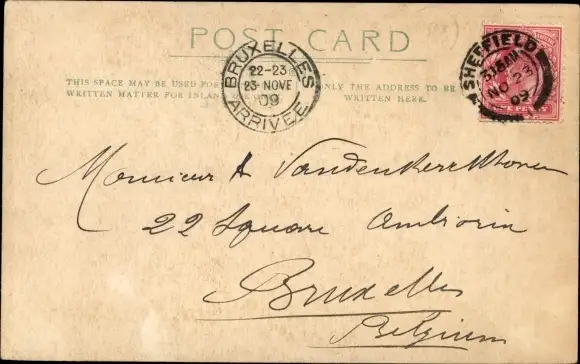 POST CARD
THIS SPACE MAY BE USED FOR
WRITTEN MATTER FOR INLAND
ONLY THE ADDRESS TO BE
WRITTEN HERE.
BRUXELLES
22-23
23 NOVE
09
ARRIVÉE
SHEFFIELD
3.15 AM
NO 23
09
Monsieur A Vandenkerckhoven
22 Square Ambiorix
Bruxelles
Belgium